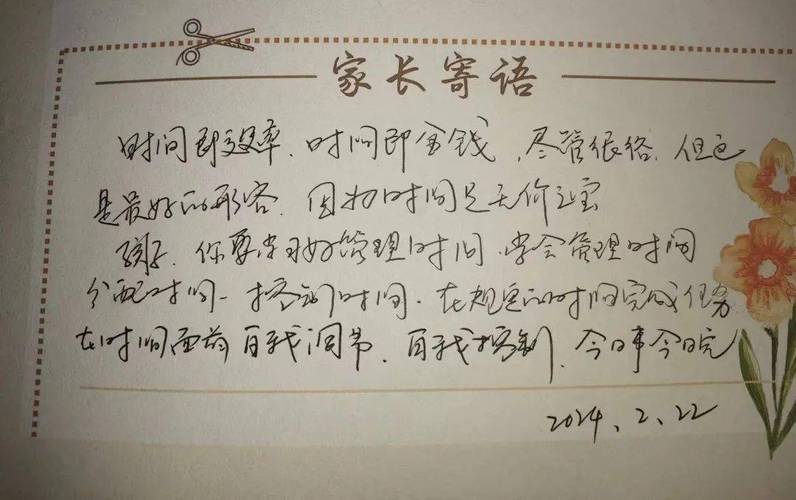 家长寄语
时间即效率、时间即金钱，尽管很俗，但它
是最好的形容，因为时间是无价之宝
孩子，你要学习好管理时间，学会管理时间
分配时间、控制时间，在规定的时间完成任务
在时间面前自我调节，自我控制，今日事今日完
2024、2、22